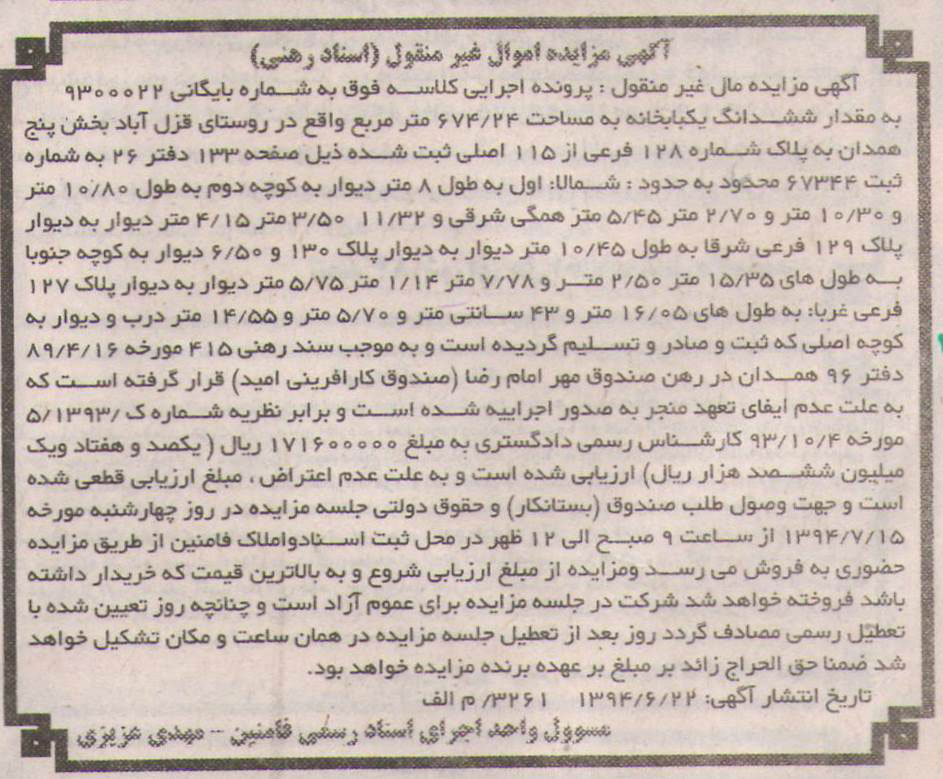 آگهی مزایده اموال غیر منقول (اسناد رهنی)
آگهی مزایده مال غیر منقول : پرونده اجرایی کلاسه فوق به شماره بایگانی ۹۳۰۰۰۲۲
به مقدار ششدانگ یکبابخانه به مساحت ۶۷۴/۲۴ متر مربع واقع در روستای قزل آباد بخش پنج
همدان به پلاک شماره ۱۲۸ فرعی از ۱۱۵ اصلی ثبت شده ذیل صفحه ۱۳۳ دفتر ۲۶ به شماره
ثبت ۶۷۳۴۴ محدود به حدود : شمالا: اول به طول ۸ متر دیوار به کوچه دوم به طول ۱۰/۸۰ متر
و ۱۰/۳۰ متر و ۲/۷۰ متر ۵/۴۵ متر همگی شرقی و ۱۱/۳۲ ۳/۵۰ متر ۴/۱۵ متر دیوار به دیوار
پلاک ۱۲۹ فرعی شرقا به طول ۱۰/۴۵ متر دیوار به دیوار پلاک ۱۳۰ و ۶/۵۰ دیوار به کوچه جنوبا
به طول های ۱۵/۳۵ متر ۲/۵۰ متر و ۷/۷۸ متر ۱/۱۴ متر ۵/۷۵ متر دیوار به دیوار پلاک ۱۲۷
فرعی غربا: به طول های ۱۶/۰۵ متر و ۴۳ سانتی متر و ۵/۷۰ متر و ۱۴/۵۵ متر درب و دیوار به
کوچه اصلی که ثبت و صادر و تسلیم گردیده است و به موجب سند رهنی ۴۱۵ مورخه ۸۹/۴/۱۶
دفتر ۹۶ همدان در رهن صندوق مهر امام رضا (صندوق کارافرینی امید) قرار گرفته است که
به علت عدم ایفای تعهد منجر به صدور اجراییه شده است و برابر نظریه شماره ک /۵/۱۳۹۳
مورخه ۹۳/۱۰/۴ کارشناس رسمی دادگستری به مبلغ ۱۷۱۶۰۰۰۰۰ ریال ( یکصد و هفتاد ویک
میلیون ششصد هزار ریال) ارزیابی شده است و به علت عدم اعتراض ، مبلغ ارزیابی قطعی شده
است و جهت وصول طلب صندوق (بستانکار) و حقوق دولتی جلسه مزایده در روز چهارشنبه مورخه
۱۳۹۴/۷/۱۵ از ساعت ۹ صبح الی ۱۲ ظهر در محل ثبت اسنادواملاک فامنین از طریق مزایده
حضوری به فروش می رسد ومزایده از مبلغ ارزیابی شروع و به بالاترین قیمت که خریدار داشته
باشد فروخته خواهد شد شرکت در جلسه مزایده برای عموم آزاد است و چنانچه روز تعیین شده با
تعطیل رسمی مصادف گردد روز بعد از تعطیل جلسه مزایده در همان ساعت و مکان تشکیل خواهد
شد ضمنا حق الحراج زائد بر مبلغ بر عهده برنده مزایده خواهد بود.
تاریخ انتشار آگهی: ۱۳۹۴/۶/۲۲ ۳۲۶۱/ م الف
مسوول واحد اجرای اسناد رسمی فامنین – مهدی عزیزی